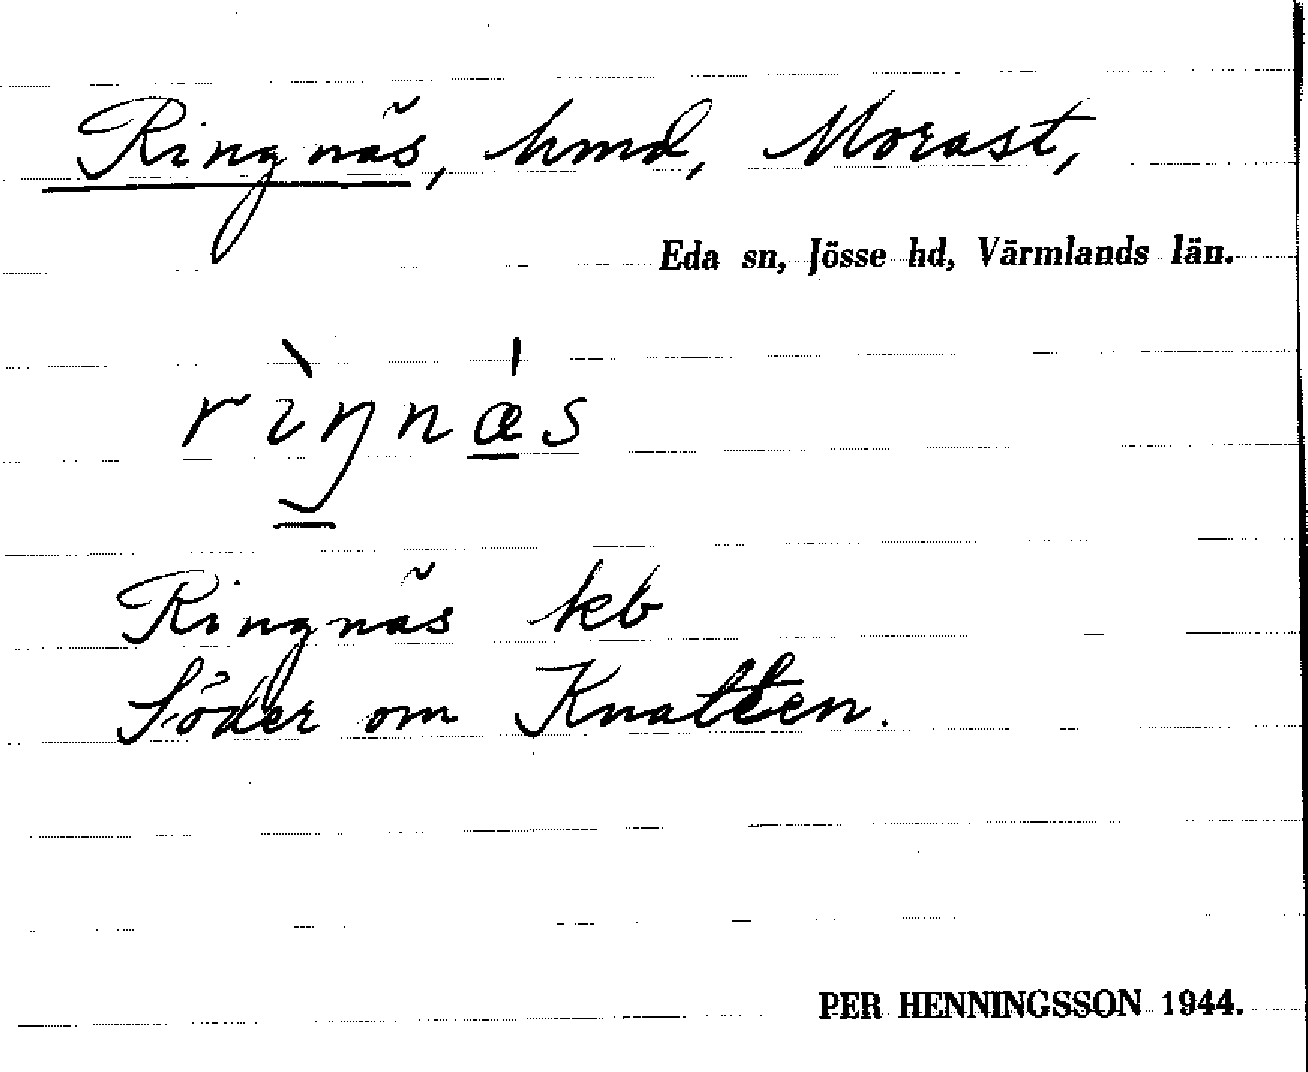 Ringnäs, hmd, Morast,
Eda sn, Jösse hd, Värmlands län.
rìŋnæ̲s
Ringnäs kb
Söder om Knatten.
PER HENNINGSSON 1944.